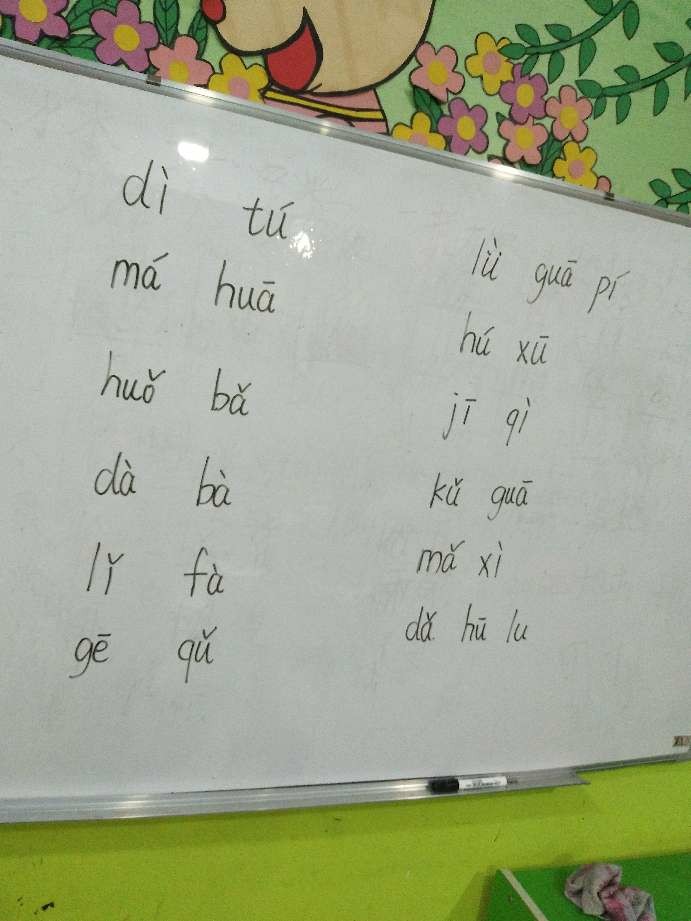 dì tú
má huā
huǒ bǎ
dà bà
lǐ fà
gē qǔ
lǜ guā pí
hú xū
jī qì
kǔ guā
mǎ xì
dǎ hū lu